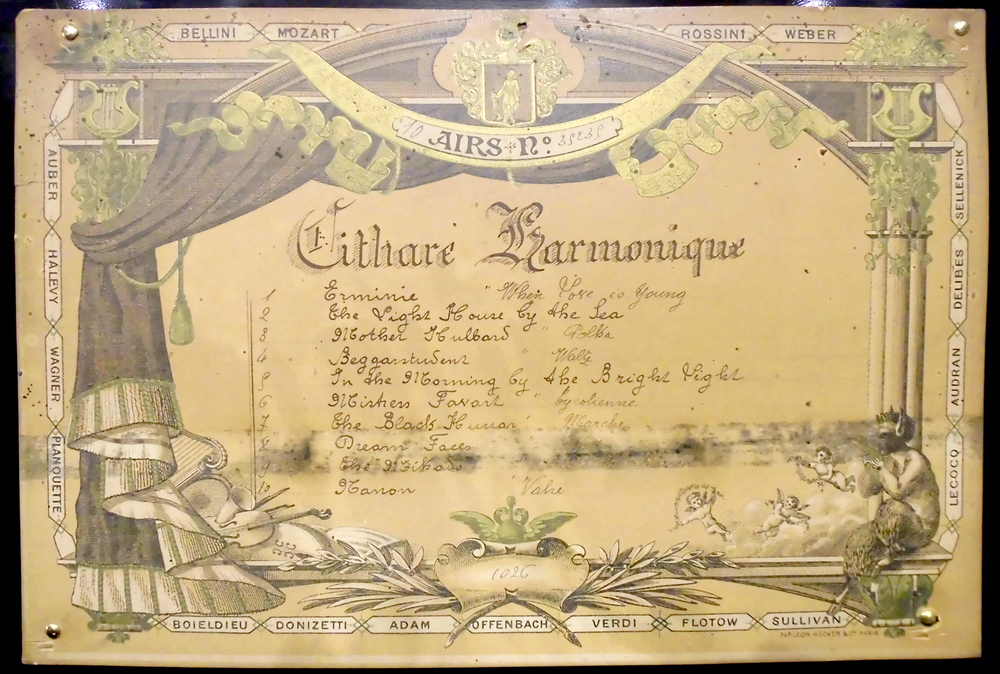 BELLINI MOZART ROSSINI WEBER
10 AIRS Nº
Cithare Harmonique
1 Erminie " When Love is Young
2 The Light House by the Sea
3 Mother Hubbard " Polka
4 Beggarstudent " Waltz
5 In the Morning by the Bright Light
6 Mistress Favart " tyrolienne
7 The Black Hussar " Marche
8 Dream Faces
9 The Mikado
10 Manon " Valse
1026
AUBER
HALEVY
WAGNER
PLANQUETTE
SELLENICK
DELIBES
AUDRAN
LECOCQ
BOIELDIEU DONIZETTI ADAM OFFENBACH VERDI FLOTOW SULLIVAN
PARIS